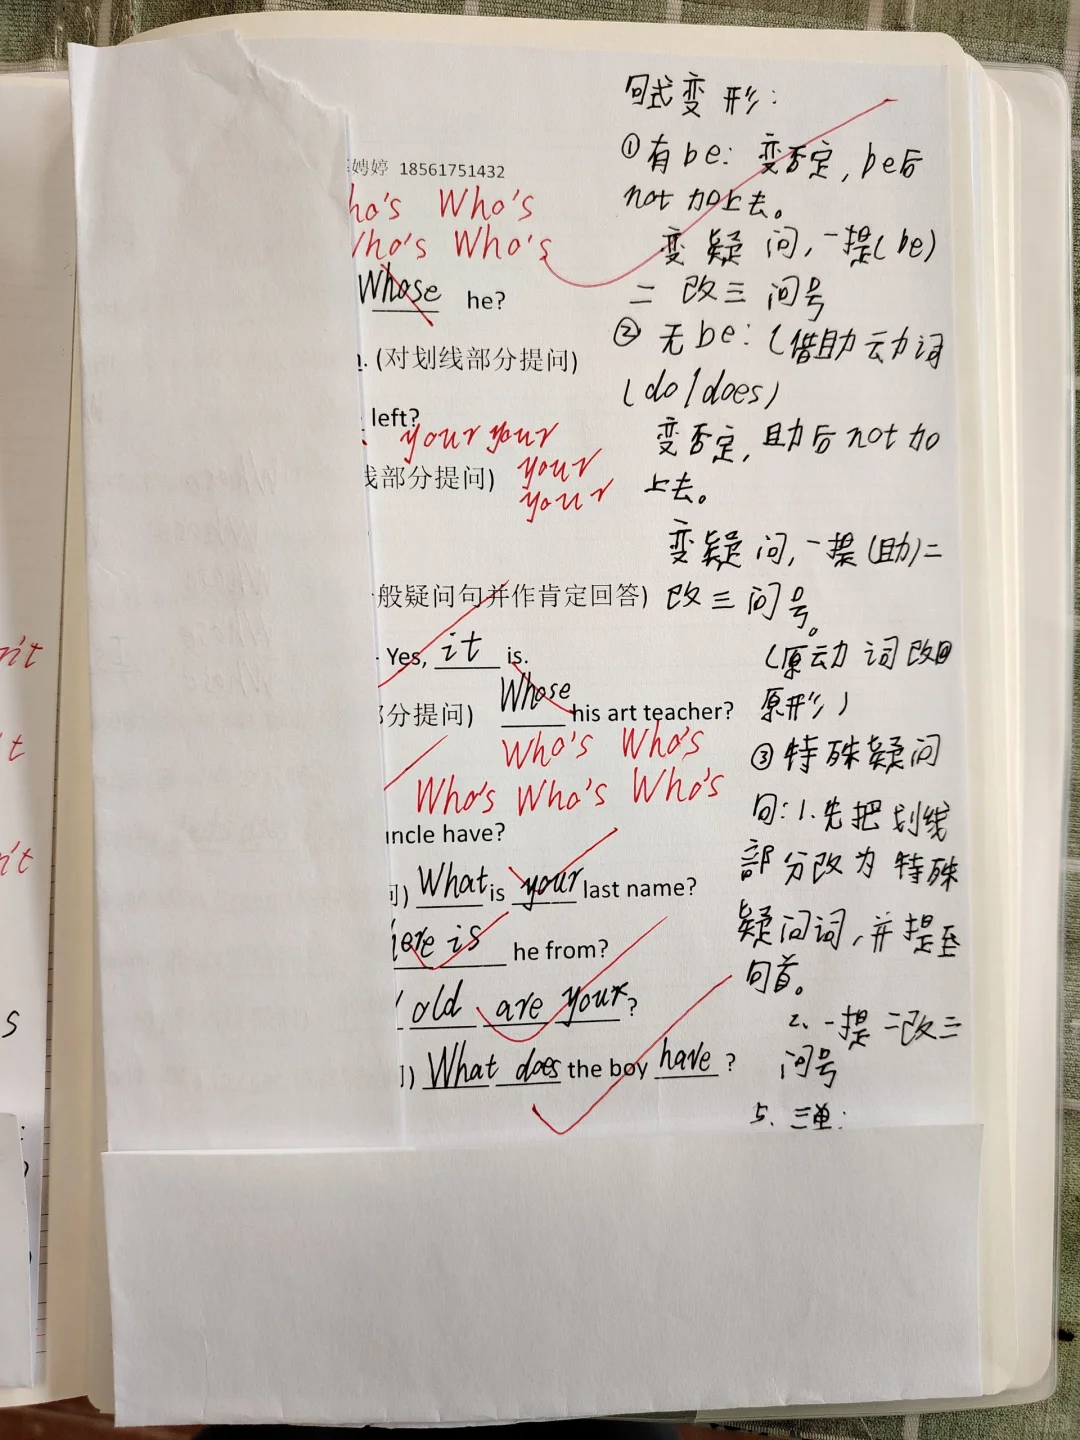 句式变形:
①有be: 变否定, be后
not加上去。
变疑问,一提(be)
二改三问号
②无be: (借助动词
(do/does)
变否定,助后not加
上去。
变疑问,一提(助)二
改三问号。
(原动词改回
原形)
③特殊疑问
句:1.先把划线
部分改为特殊
疑问词,并提至
句首。
2、一提二改三
问号
5、三单:
娉婷 18561751432
ho's Who's
Who's Who's
Whose he?
. (对划线部分提问)
left?
your your
线部分提问) your
your
般疑问句并作肯定回答)
Yes, it is.
部分提问) Whose his art teacher?
Who's Who's
Who's Who's Who's
uncle have?
问) What is your last name?
here is he from?
old are your?
问) What does the boy have ?
n't
't
n't
s